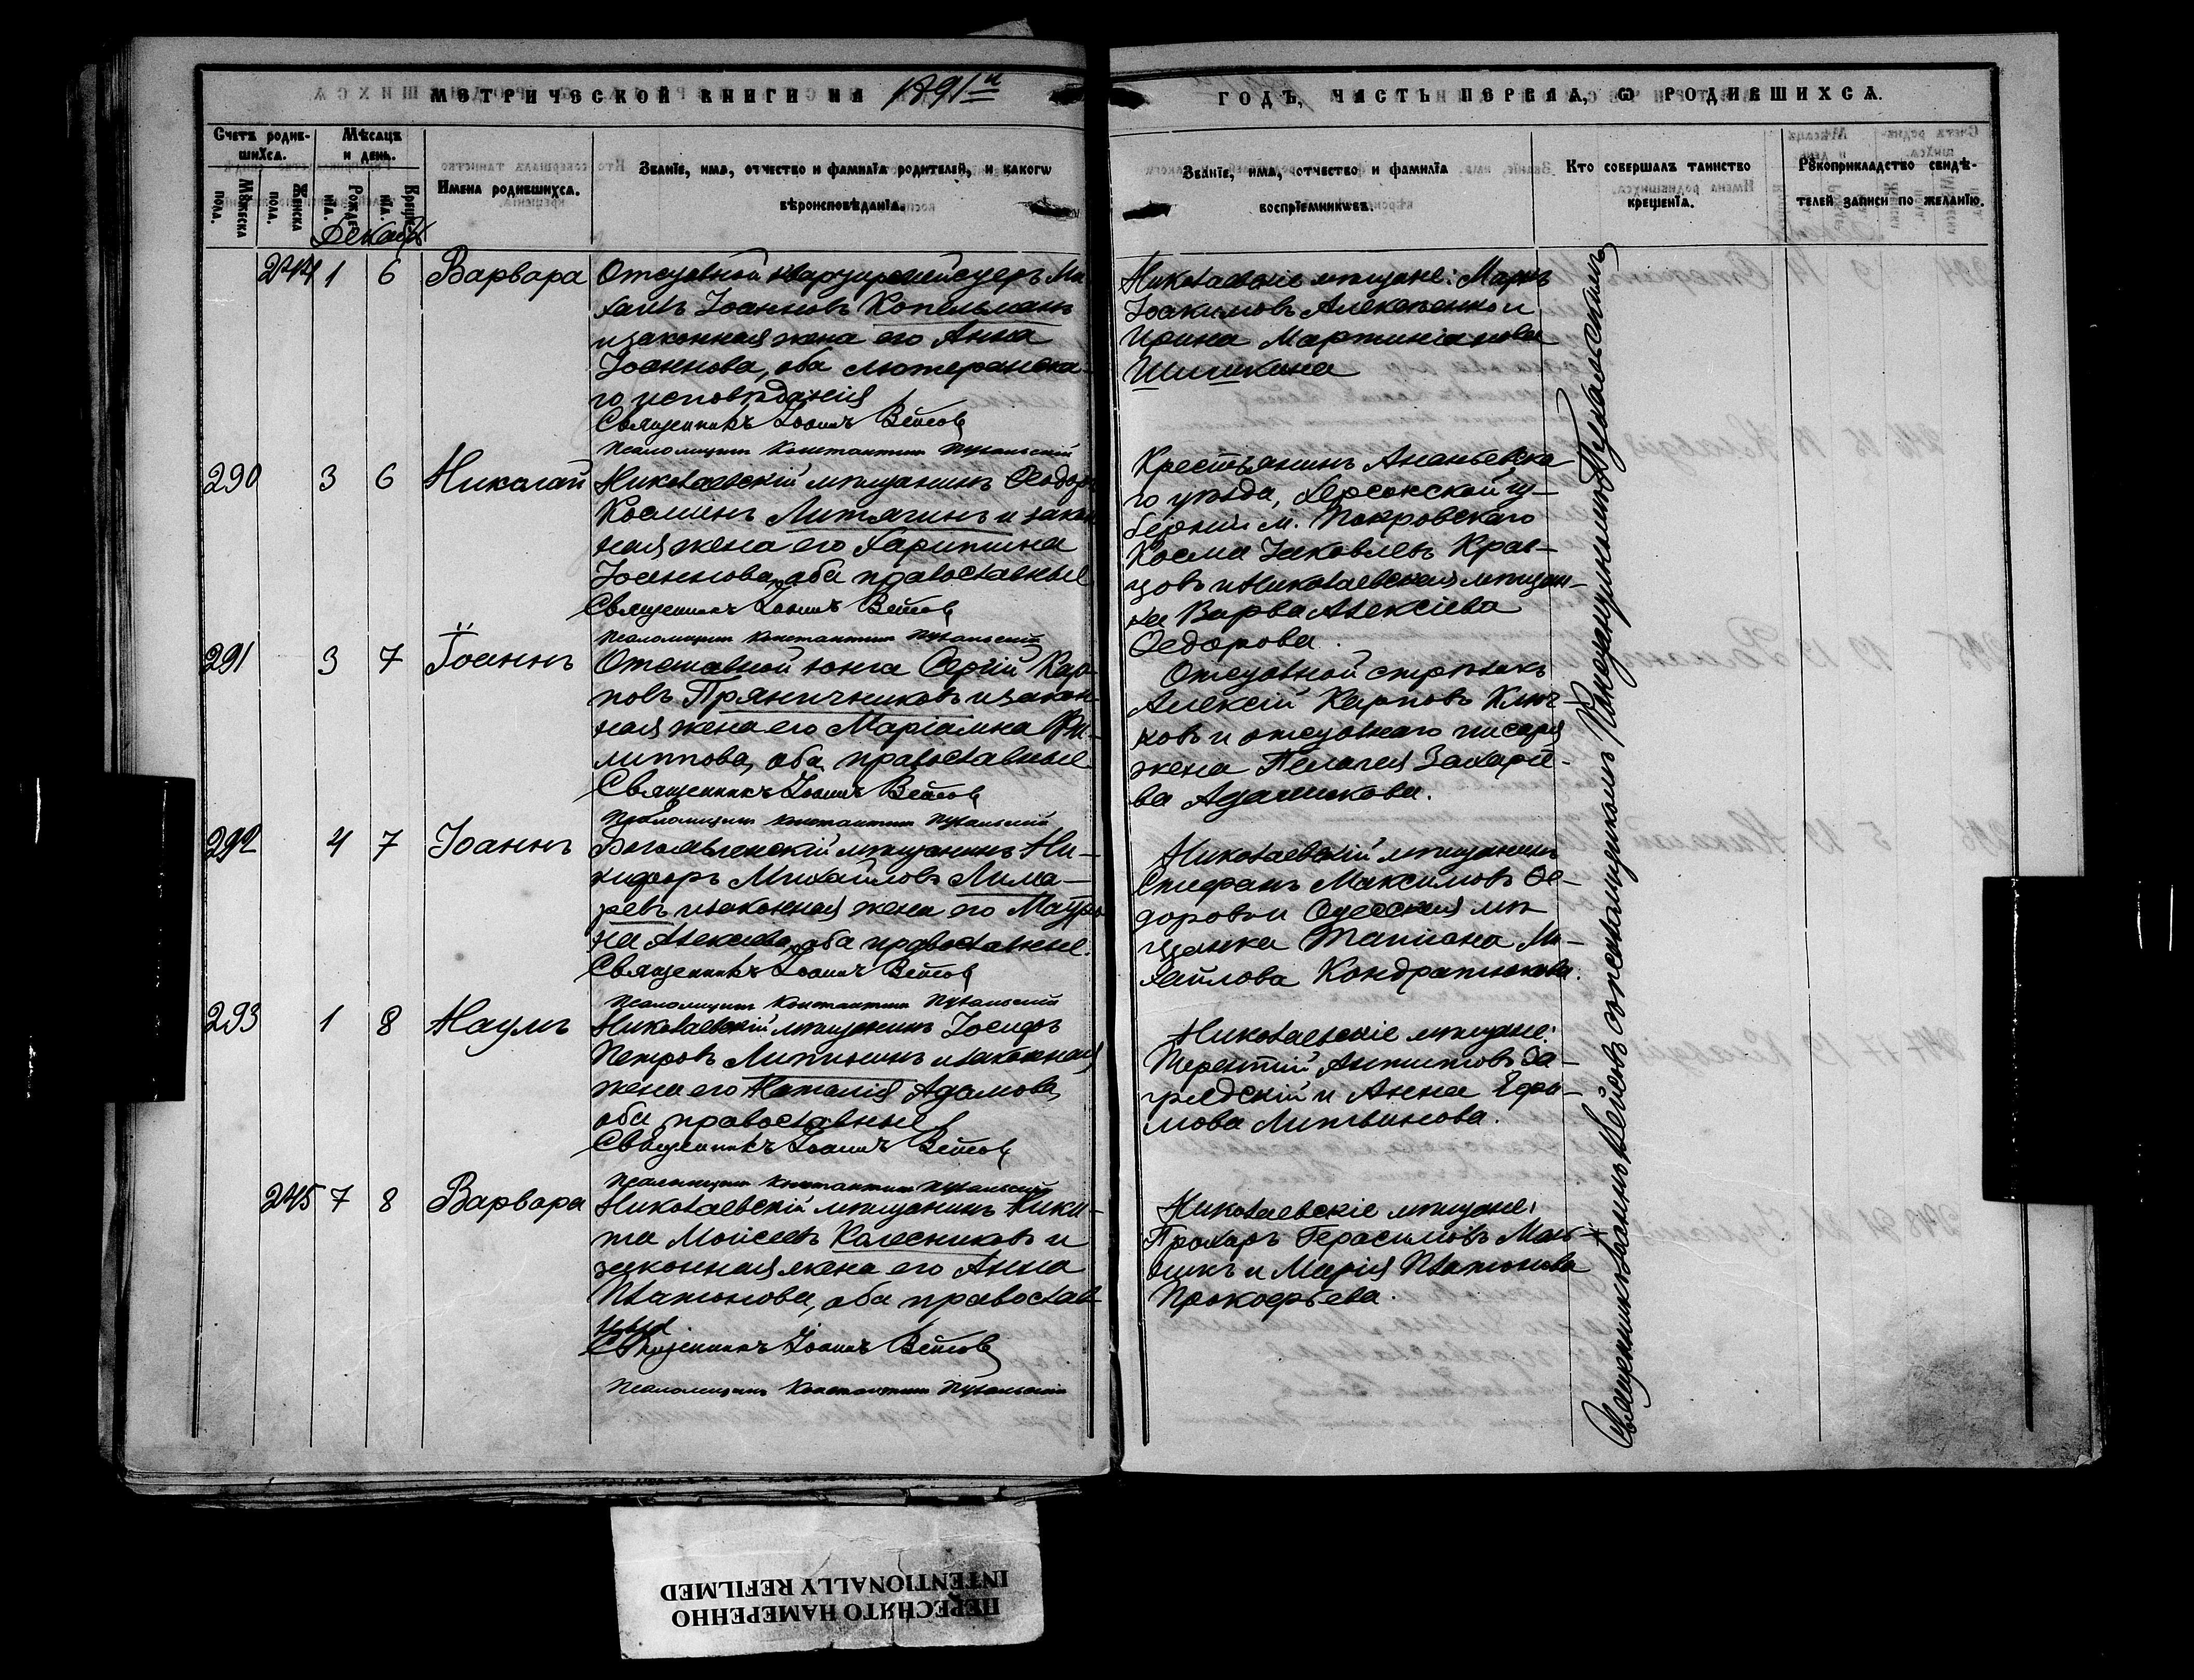 МЕТРИЧЕСКОЙ КНИГИ НА 1891й
ГОДЪ, ЧАСТЬ ПЕРВАЯ, Ѡ РОДИВШИХСѦ.
Счетъ родив-
шихсѧ.
Мѣсѧцъ
и день.
Мꙋжеска
пола.
Женска
пола.
Рожде-
нїѧ.
Креще-
нїѧ.
Имена родившихсѧ.
Званїе, имѧ, отчество и фамилїа родителей, и какогѡ
вѣроисповѣданїѧ.
Званїе, имѧ, отчество и фамилїа
воспрїемникѡвъ.
Кто совершалъ таинство
крещенїѧ.
Рꙋкоприкладство свидѣ-
телей записи по желанїю.
Декабрь
244 1 6 Варвара
Отставной Ми-
хаилъ Іоанновъ Копельманъ
и законная жена его Анна
Іоаннова, оба лютеранска-
го исповѣданія
Священникъ Іоаннъ Вейсовъ
Псаломщикъ Константинъ
Николаевскіе мѣщане: Маркъ
Іоакимовъ Алексѣенко и
Ирина Мартиніанова
Шишкина
290 3 6 Николай
Николаевскій мѣщанинъ Ѳеодоръ
Косминъ Литягинъ и закон
ная жена его Харитина
Іоаннова, оба православные
Священникъ Іоаннъ Вейсовъ
Псаломщикъ Константинъ
Крестьянинъ Ананьевска
го уѣзда, Херсонской гу-
берніи м. Покровскаго
Косма Іаковлевъ Крав-
цовъ и Николаевская мѣщан-
ка Варва Алексіева
Ѳедорова.
291 3 7 Іоаннъ
Отставной юнга Сергій Кар-
повъ Пряничниковъ и закон-
ная жена его Маріамна Фи-
липпова, оба православные
Священникъ Іоаннъ Вейсовъ
Псаломщикъ Константинъ
Отставной стрѣлокъ
Алексій Карповъ Ключ-
ковъ и отставнаго писаря
жена Пелагея Захаріе-
ва Адамикова.
292 4 7 Іоаннъ
Богоявленскій мѣщанинъ Ни-
кифоръ Михайловъ Лима-
ревъ и законная жена его Матро
на Алексѣева, оба православные.
Священникъ Іоаннъ Вейсовъ
Псаломщикъ Константинъ
Николаевскій мѣщанинъ
Стефанъ Максимовъ Ѳе-
доровъ и Одесская мѣ-
щанка Татіана Ми-
хайлова Кондратюкова.
293 1 8 Наумъ
Николаевскій мѣщанинъ Іосифъ
Петровъ Литвинъ и законная
жена его Наталія Адамова,
оба православные
Священникъ Іоаннъ Вейсовъ
Псаломщикъ Константинъ
Николаевскіе мѣщане:
Терентій Антиповъ За-
градскій и Анна Ефи-
мова Литвинова.
245 7 8 Варвара
Николаевскій мѣщанинъ Ники-
та Моисеевъ Колесниковъ и
законная жена его Анна
Платонова, оба православ
ные
Священникъ Іоаннъ Вейсовъ
Псаломщикъ Константинъ
Николаевскіе мѣщане:
Прохоръ Герасимовъ
и Марія Платонова
Прокофьева.
Священникъ Іоаннъ Вейсовъ съ псаломщикомъ Константиномъ
ПЕРЕСНЯТО НАМЕРЕННО
INTENTIONALLY REFILMED